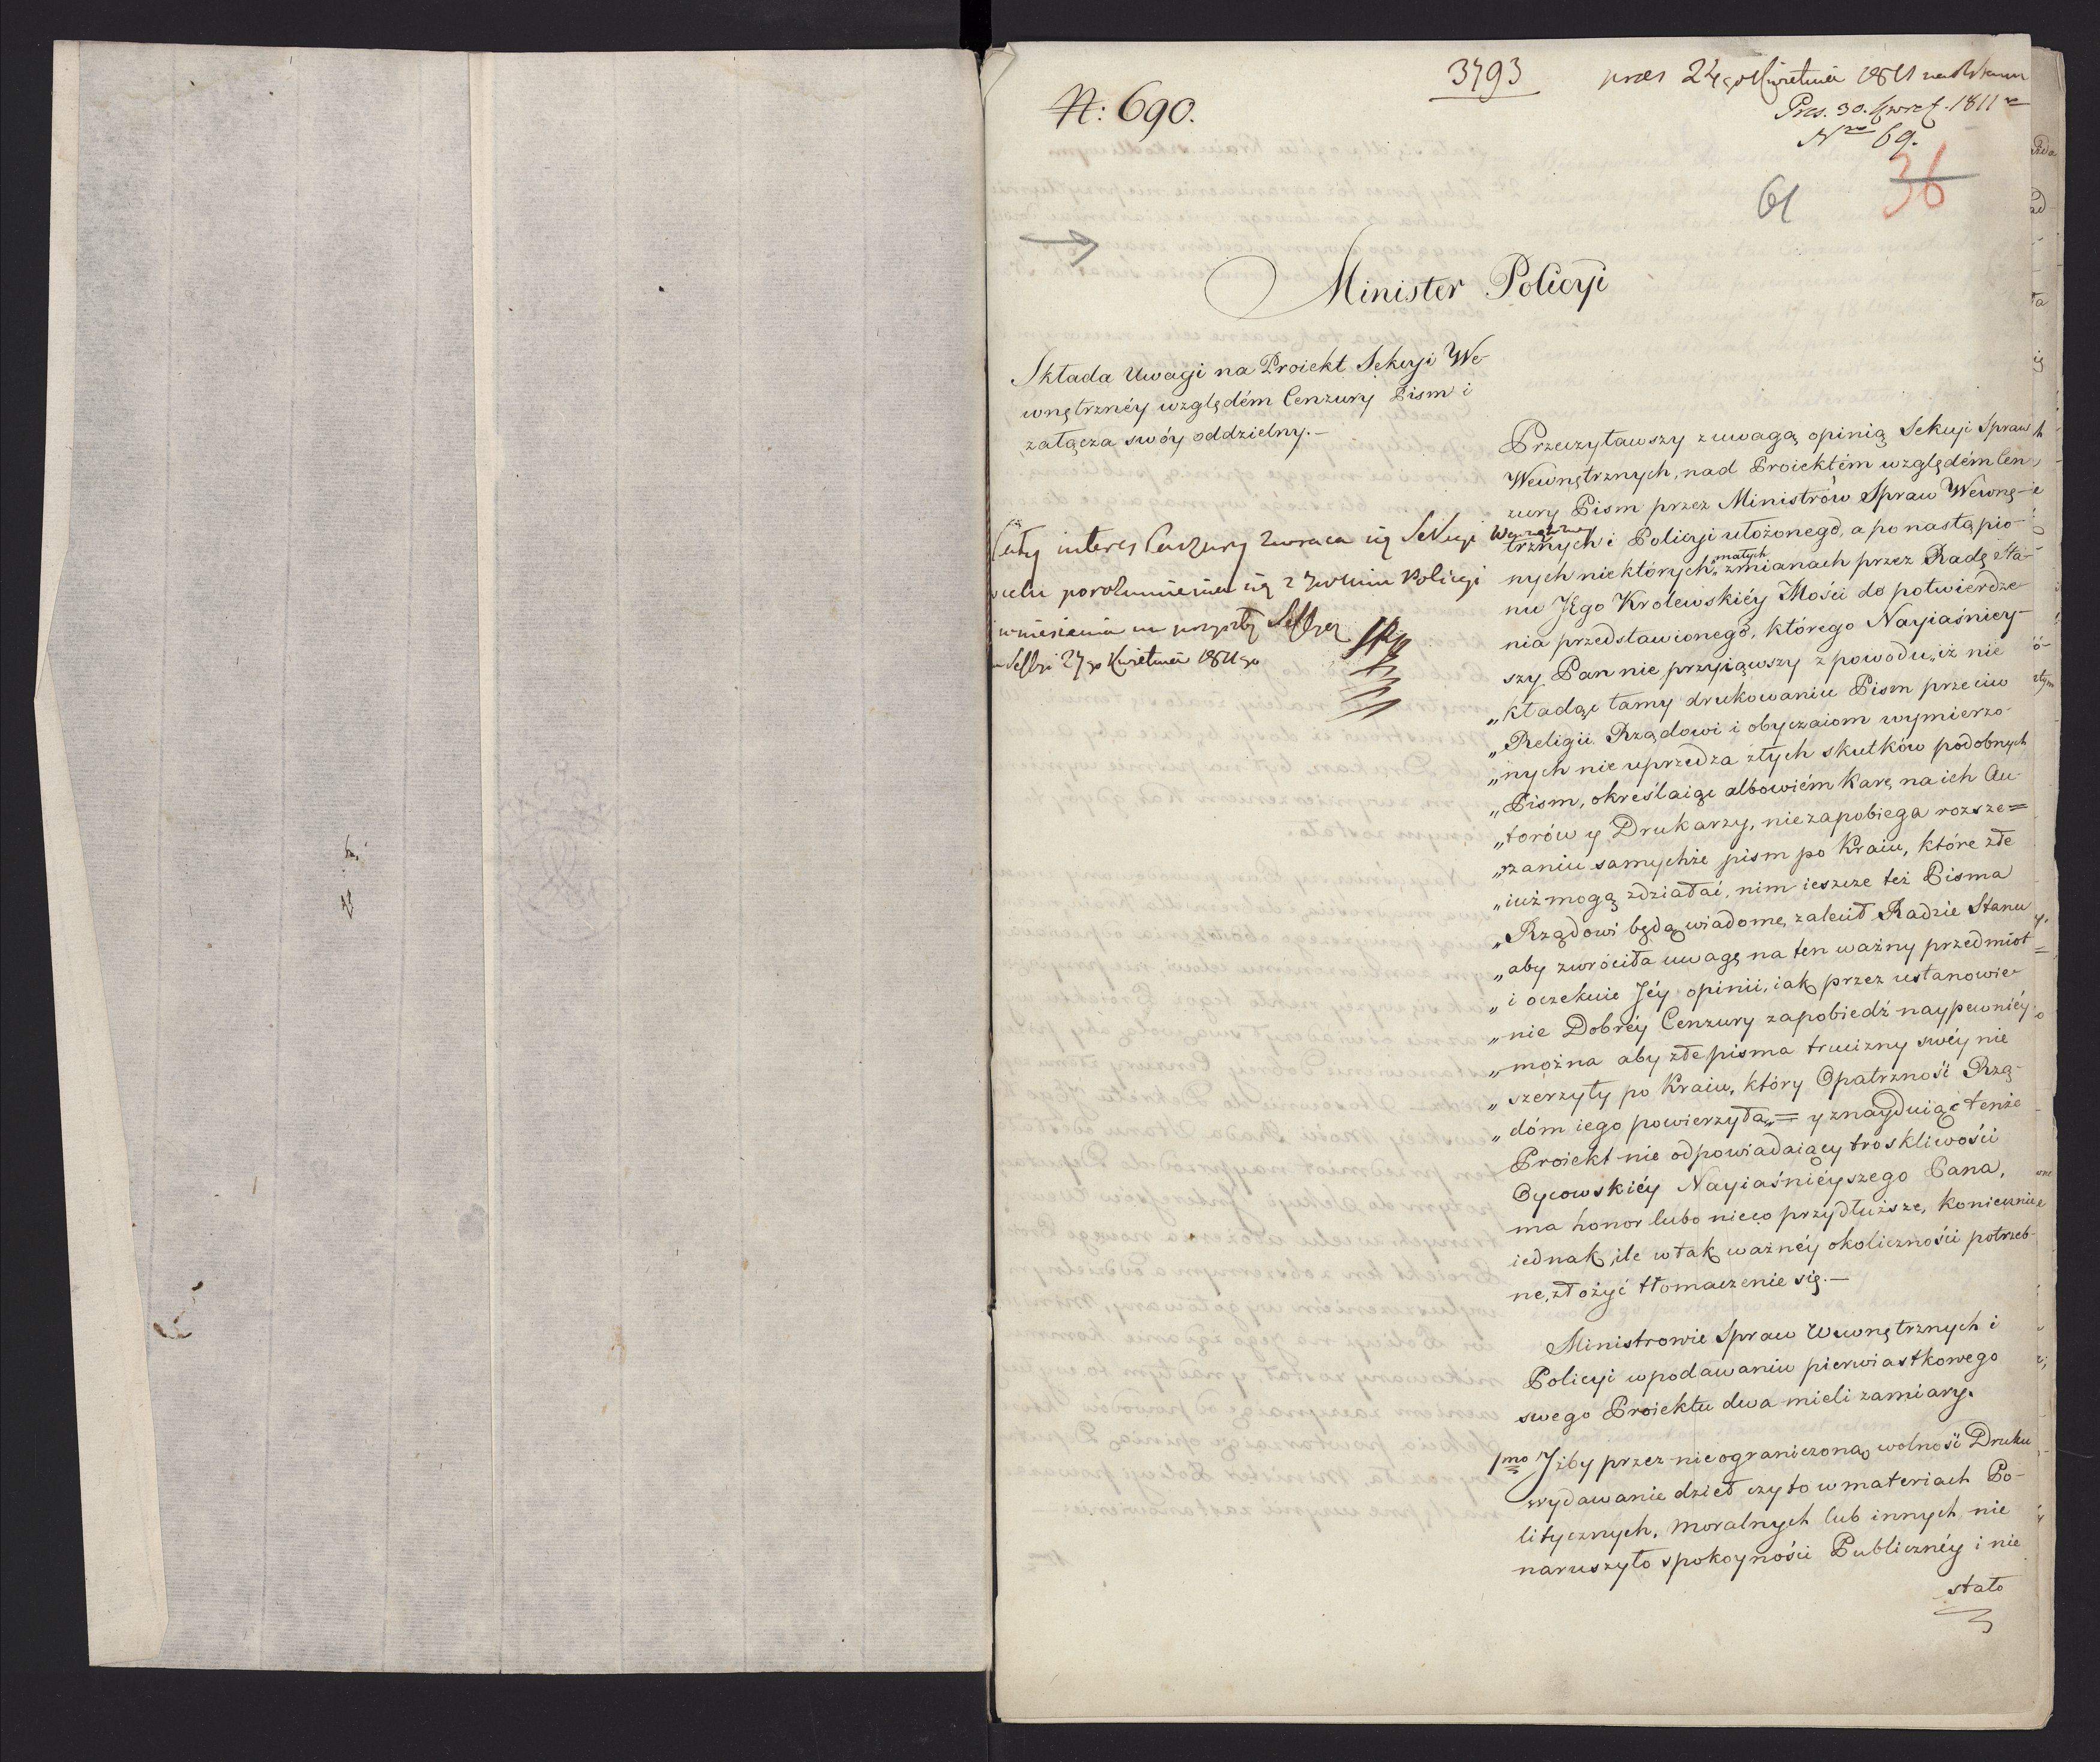 N: 690.
3793
pres 24go Kwietnia 1811
Pres. 30. Kwiet. 1811
Nro 69.
61
36
Minister Policyi
Składa Uwagi na Proiekt Sekcyi We-
wnętrznéy względém Cenzury Pism i
załącza swóy oddzielny.—
Cały interes Cenzury zwraca się Sekcyi Wewnętrzney
celu porozumienia się z Policyi
wniesienia na przyszłą Sessyę
Sessyi 27go Kwietnia 1811go
Przeczytawszy z uwagą opinią Sekcyi Spraw
Wewnętrznych, nad Proiektém względém Cen
zury Pism przez Ministrów Spraw Wewnę-
trznych i Policyi ułożonego, a po nastąpio-
nych niektórych małych zmianach przez Radę Sta-
nu JEgo Krolewskiéy Mości do potwierdze
nia przedstawionego, którego Nayiaśniey-
szy Pan nie przyiąwszy z powodu, „iż nie
„kładąc tamy drukowaniu Pism przeciw
„Religii Rządowi i obyczaiom wymierzo-
„nych nie uprzedza złych skutków podobnych
„Pism, określaiąc albowiém karę na ich Au-
„torów y Drukarzy, nie zapobiega rozsze=
„rzaniu samychże pism po Kraiu, które złe
„iuż mogą zdziałać, nim ieszcze też Pisma
„Rządowi będą wiadome, zalecił Radzie Stanu
„aby zwróciła uwagę na ten ważny przedmiot
„i oczekuie Jéy opinii, iak przez ustanowie-
„nie Dobréy Cenzury zapobiedź naypewniéy
„można aby złe pisma trucizny swéy nie
„szerzyły po Kraiu, który Opatrzność Rzą-
„dóm iego powierzyła„= y znayduiąc tenże
Proiekt nie odpowiadaiący troskliwości
Oycowskiéy Nayiaśniéyszego Pana,
ma honor lubo nieco przydłuższe, koniecznie
iednak, ile w tak ważnéy okoliczności potrzeb-
ne, złożyć tłomaczenie się.—
Ministrowie Spraw Wewnętrznych i
Policyi w podawaniu pierwiastkowego
swego Proiektu dwa mieli zamiary.
1mo Jżby przez nieograniczoną wolność Druku
wydawanie dzieł czy to w materiach Po-
litycznych, moralnych lub innych nie
naruszyło spokoyności Publicznéy i nie
stało